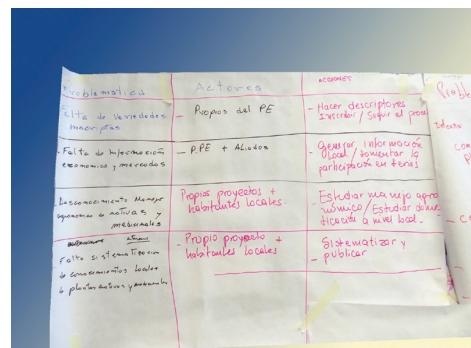 Problematica
Actores
ACCIONES
Falta de Variedades
inscriptas
- Propios del PE
- Hacer descriptores
Inscribir / Seguir el proceso
- Falta de Información
economica y mercados
- PPE + Aliados
- Generar, información
Local / fomentar la
participación en ferias
- Desconocimiento Manejo
agronomico de nativas y
medicinales
Propios proyectos +
habitantes locales.
- Estudiar manejo agro
nómico / Estudiar domes
ticación a nivel local.
Falta sistematización
de conocimientos locales
de plantas nativas y
- Propio proyecto +
habitantes locales
Sistematizar y
- publicar
Proble